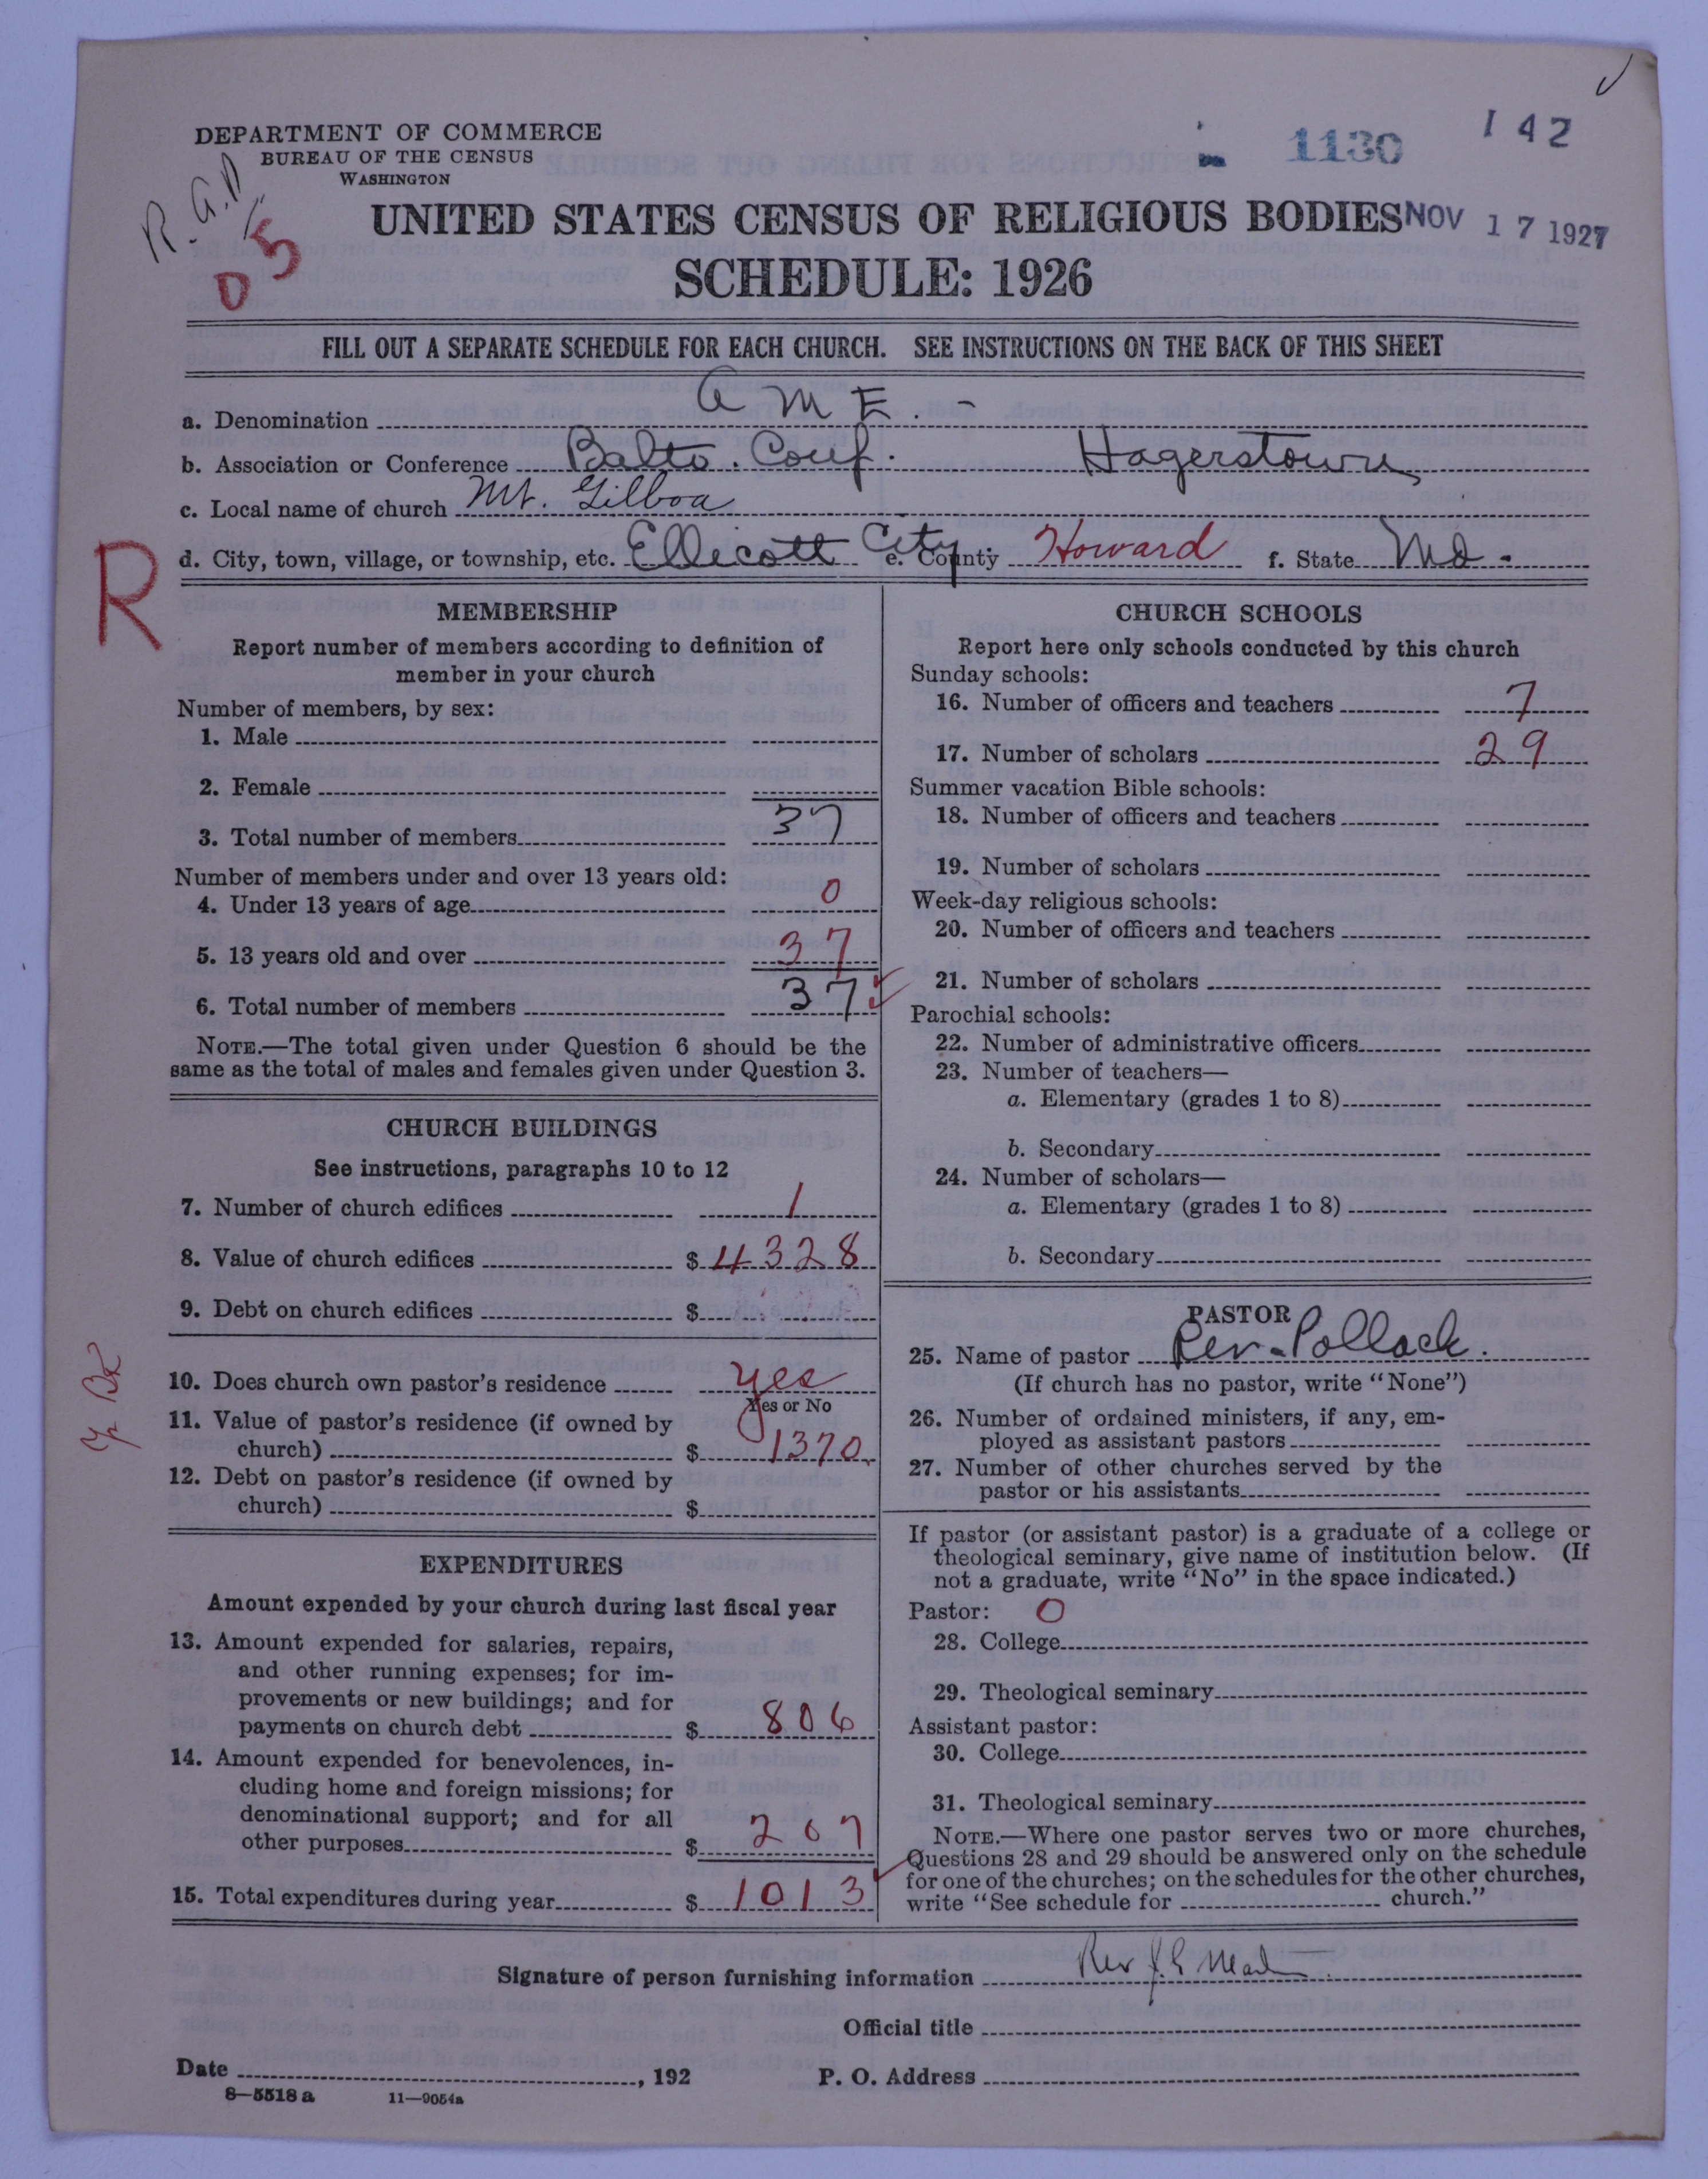 DEPARTMENT OF COMMERCE
BUREAU OF THE CENSUS
WASHINGTON
R.G.D.
D 5
1130
142
UNITED STATES CENSUS OF RELIGIOUS BODIES
NOV 17 1927
SCHEDULE: 1926
FILL OUT A SEPARATE SCHEDULE FOR EACH CHURCH. SEE INSTRUCTIONS ON THE BACK OF THIS SHEET
a. Denomination A M E. -
b. Association or Conference Balto. Conf. Hagerstown
c. Local name of church Mt. Gilboa
d. City, town, village, or township, etc. Ellicott City. e. County Howard f. State Md.
R
MEMBERSHIP
Report number of members according to definition of
member in your church
Number of members, by sex:
1. Male
2. Female
3. Total number of members 37
Number of members under and over 13 years old:
4. Under 13 years of age 0
5. 13 years old and over 37
6. Total number of members 37
NOTE.—The total given under Question 6 should be the
same as the total of males and females given under Question 3.
CHURCH BUILDINGS
See instructions, paragraphs 10 to 12
7. Number of church edifices 1
8. Value of church edifices $ 4328
9. Debt on church edifices $
10. Does church own pastor's residence yes
Yes or No
11. Value of pastor's residence (if owned by
church) $ 1370.
12. Debt on pastor's residence (if owned by
church) $
EXPENDITURES
Amount expended by your church during last fiscal year
13. Amount expended for salaries, repairs,
and other running expenses; for im-
provements or new buildings; and for
payments on church debt $ 806
14. Amount expended for benevolences, in-
cluding home and foreign missions; for
denominational support; and for all
other purposes $ 207
15. Total expenditures during year $ 1013
CHURCH SCHOOLS
Report here only schools conducted by this church
Sunday schools:
16. Number of officers and teachers 7
17. Number of scholars 29
Summer vacation Bible schools:
18. Number of officers and teachers
19. Number of scholars
Week-day religious schools:
20. Number of officers and teachers
21. Number of scholars
Parochial schools:
22. Number of administrative officers
23. Number of teachers—
a. Elementary (grades 1 to 8)
b. Secondary
24. Number of scholars—
a. Elementary (grades 1 to 8)
b. Secondary
PASTOR
25. Name of pastor Rev. Pollack.
(If church has no pastor, write "None")
26. Number of ordained ministers, if any, em-
ployed as assistant pastors
27. Number of other churches served by the
pastor or his assistants
If pastor (or assistant pastor) is a graduate of a college or
theological seminary, give name of institution below. (If
not a graduate, write "No" in the space indicated.)
Pastor: 0
28. College
29. Theological seminary
Assistant pastor:
30. College
31. Theological seminary
NOTE.—Where one pastor serves two or more churches,
Questions 28 and 29 should be answered only on the schedule
for one of the churches; on the schedules for the other churches,
write "See schedule for church."
Signature of person furnishing information Rev
Official title
Date , 192
P. O. Address
8—5518 a 11—9054a